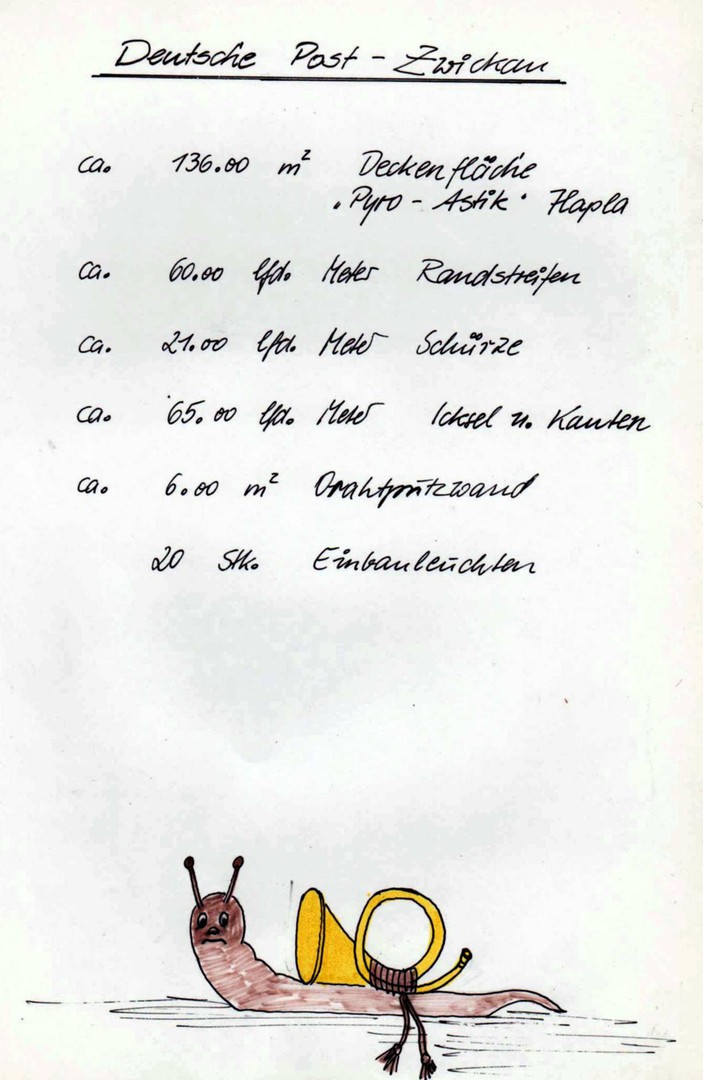 Deutsche Post - Zwickau
ca. 136.00 m² Deckenfläche
"Pyro - Astik" Hapla
ca. 60.00 lfd. Meter Randstreifen
ca. 21.00 lfd. Meter Schürze
ca. 65.00 lfd. Meter Icksel u. Kanten
ca. 6.00 m² Drahtputzwand
20 Stk. Einbauleuchten